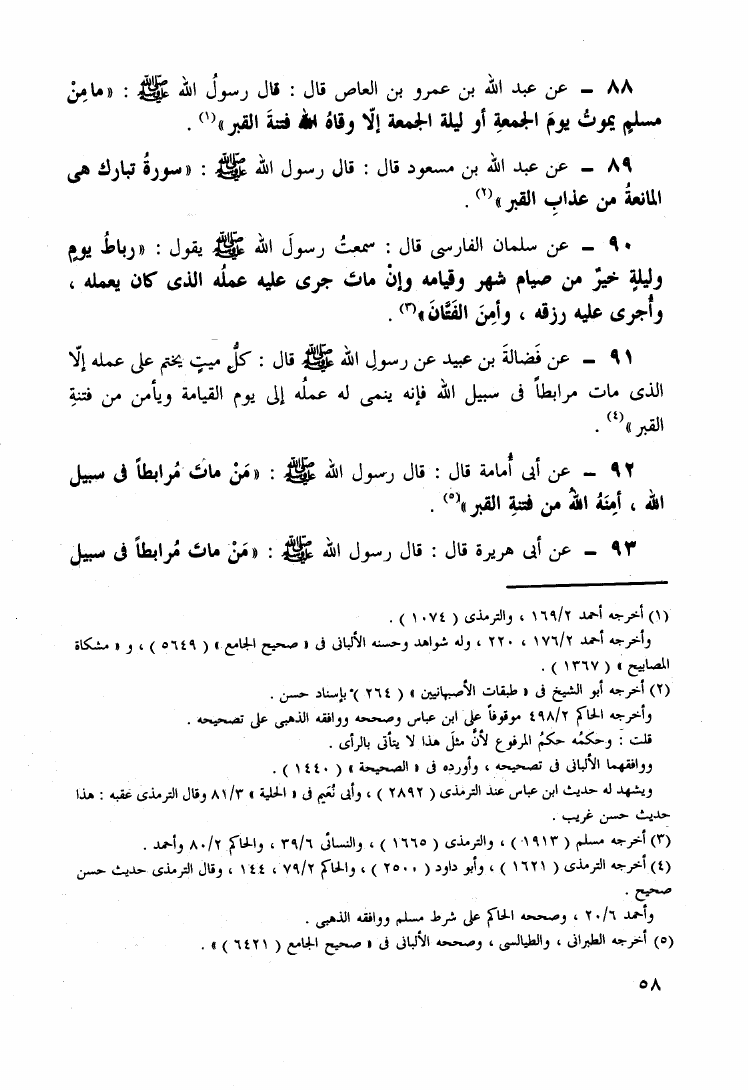 ٨٨ – عن عبد الله بن عمرو بن العاص قال : قال رسولُ الله ﷺ : «ما مِنْ
مسلمٍ يموتُ يومَ الجمعةِ أو ليلة الجمعة إلّا وقاهُ الله فتنةَ القبر»(١) .
٨٩ – عن عبد الله بن مسعود قال : قال رسول الله ﷺ : «سورةُ تبارك هى
المانعةُ من عذابِ القبر»(٢) .
٩٠ – عن سلمان الفارسى قال : سمعتُ رسولَ الله ﷺ يقول : «رباطُ يومٍ
وليلةٍ خيرٌ من صيام شهر وقيامه وإنْ ماتَ جرى عليه عملُه الذى كان يعمله ،
وأُجرى عليه رزقه ، وأمِنَ الفَتَّانَ»(٣) .
٩١ – عن فَضالةَ بن عبيد عن رسولِ الله ﷺ قال : كلُّ ميتٍ يختم على عمله إلّا
الذى مات مرابطاً فى سبيل الله فإنه ينمى له عملُه إلى يوم القيامة ويأمن من فتنةِ
القبر»(٤) .
٩٢ – عن أبى أُمامة قال : قال رسول الله ﷺ : «مَنْ ماتَ مُرابطاً فى سبيل
الله ، أمِنَهُ اللهُ من فتنةِ القبر»(٥) .
٩٣ – عن أبى هريرة قال : قال رسول الله ﷺ : «مَنْ ماتَ مُرابطاً فى سبيل
(١) أخرجه أحمد ١٦٩/٢ ، والترمذى ( ١٠٧٤ ) .
وأخرجه أحمد ١٧٦/٢ ، ٢٢٠ ، وله شواهد وحسنه الألبانى فى « صحيح الجامع » ( ٥٦٤٩ ) ، و « مشكاة
المصابيح » ( ١٣٦٧ ) .
(٢) أخرجه أبو الشيخ فى « طبقات الأصبهانيين » ( ٢٦٤ ) بإسناد حسن .
وأخرجه الحاكم ٤٩٨/٢ موقوفاً على ابن عباس وصححه ووافقه الذهبى على تصحيحه .
قلت : وحكمُه حكمُ المرفوع لأنَّ مثلَ هذا لا يتأتى بالرأى .
ووافقهما الألبانى فى تصحيحه ، وأورده فى « الصحيحة » ( ١٤٤٠ ) .
ويشهد له حديث ابن عباس عند الترمذى ( ٢٨٩٢ ) ، وأبى نُعَيم فى « الحلية » ٨١/٣ وقال الترمذى عقبه : هذا
حديث حسن غريب .
(٣) أخرجه مسلم ( ١٩١٣ ) ، والترمذى ( ١٦٦٥ ) ، والنسائى ٣٩/٦ ، والحاكم ٨٠/٢ وأحمد .
(٤) أخرجه الترمذى ( ١٦٢١ ) ، وأبو داود ( ٢٥٠٠ ) ، والحاكم ٧٩/٢ ، ١٤٤ ، وقال الترمذى حديث حسن
صحيح .
وأحمد ٢٠/٦ ، وصححه الحاكم على شرط مسلم ووافقه الذهبى .
(٥) أخرجه الطبرانى ، والطيالسى ، وصححه الألبانى فى « صحيح الجامع ( ٦٤٢١ ) » .
٥٨